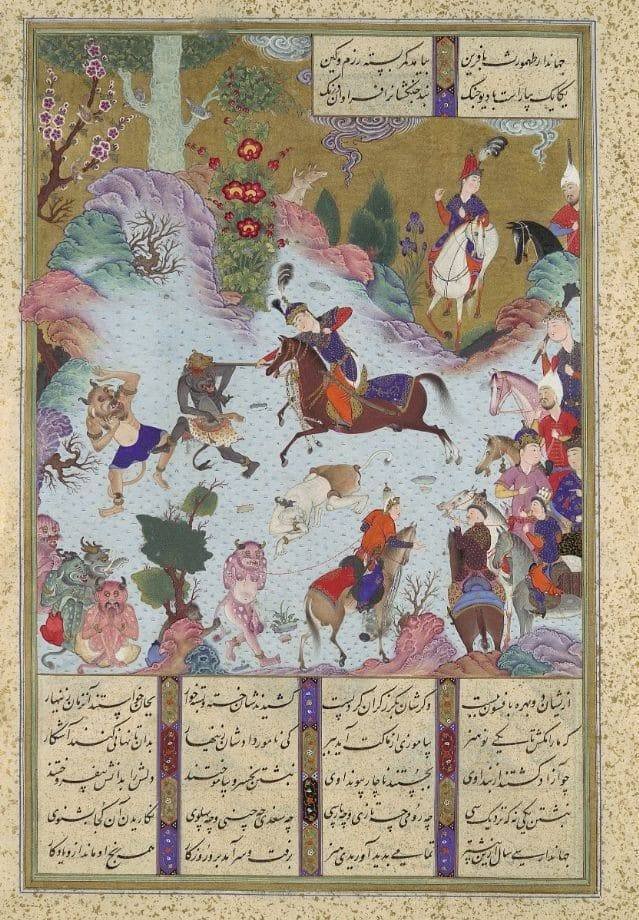 جهاندار طهمورث بافرین بیامد کمربسته رزم و کین
یکایک بیاراست با دیو جنگ نبد جنگشانرا فراوان درنگ
ازیشان دو بهره بافسون ببست دگرشان بگرز گران کرد پست کشیدندشان خسته و بسته خوار بجان خواستند آن زمان زینهار
که ما را مکش تا یکی نو هنر بیاموزی از ما کت آید ببر کی نامور دادشان زینهار بدان تا نهانی کنند آشکار
چو آزاد گشتند از بند اوی بجستند ناچار پیوند اوی نبشتن بخسرو بیاموختند دلش را بدانش برافروختند
نبشتن یکی نه که نزدیک سی چه رومی چه تازی و چه پارسی چه سغدی چه چینی و چه پهلوی نگاریدن آن کجا بشنوی
جهاندار سی سال ازین بیشتر پدید آوریدی هنر برفت و سرآمد برو روزگار همه رنج او ماند ازو یادگار